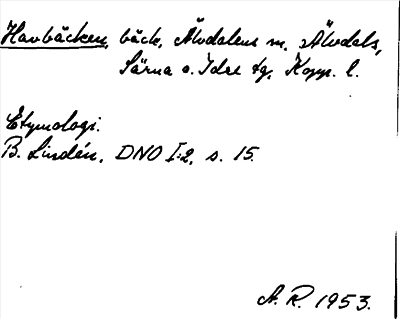 Havbäcken, bäck, Älvdalens sn, Älvdals,
Särna o. Idre tg, Kopp. l.
Etymologi.
B. Lindén, DNO I:2, s. 15.
A. R. 1953.